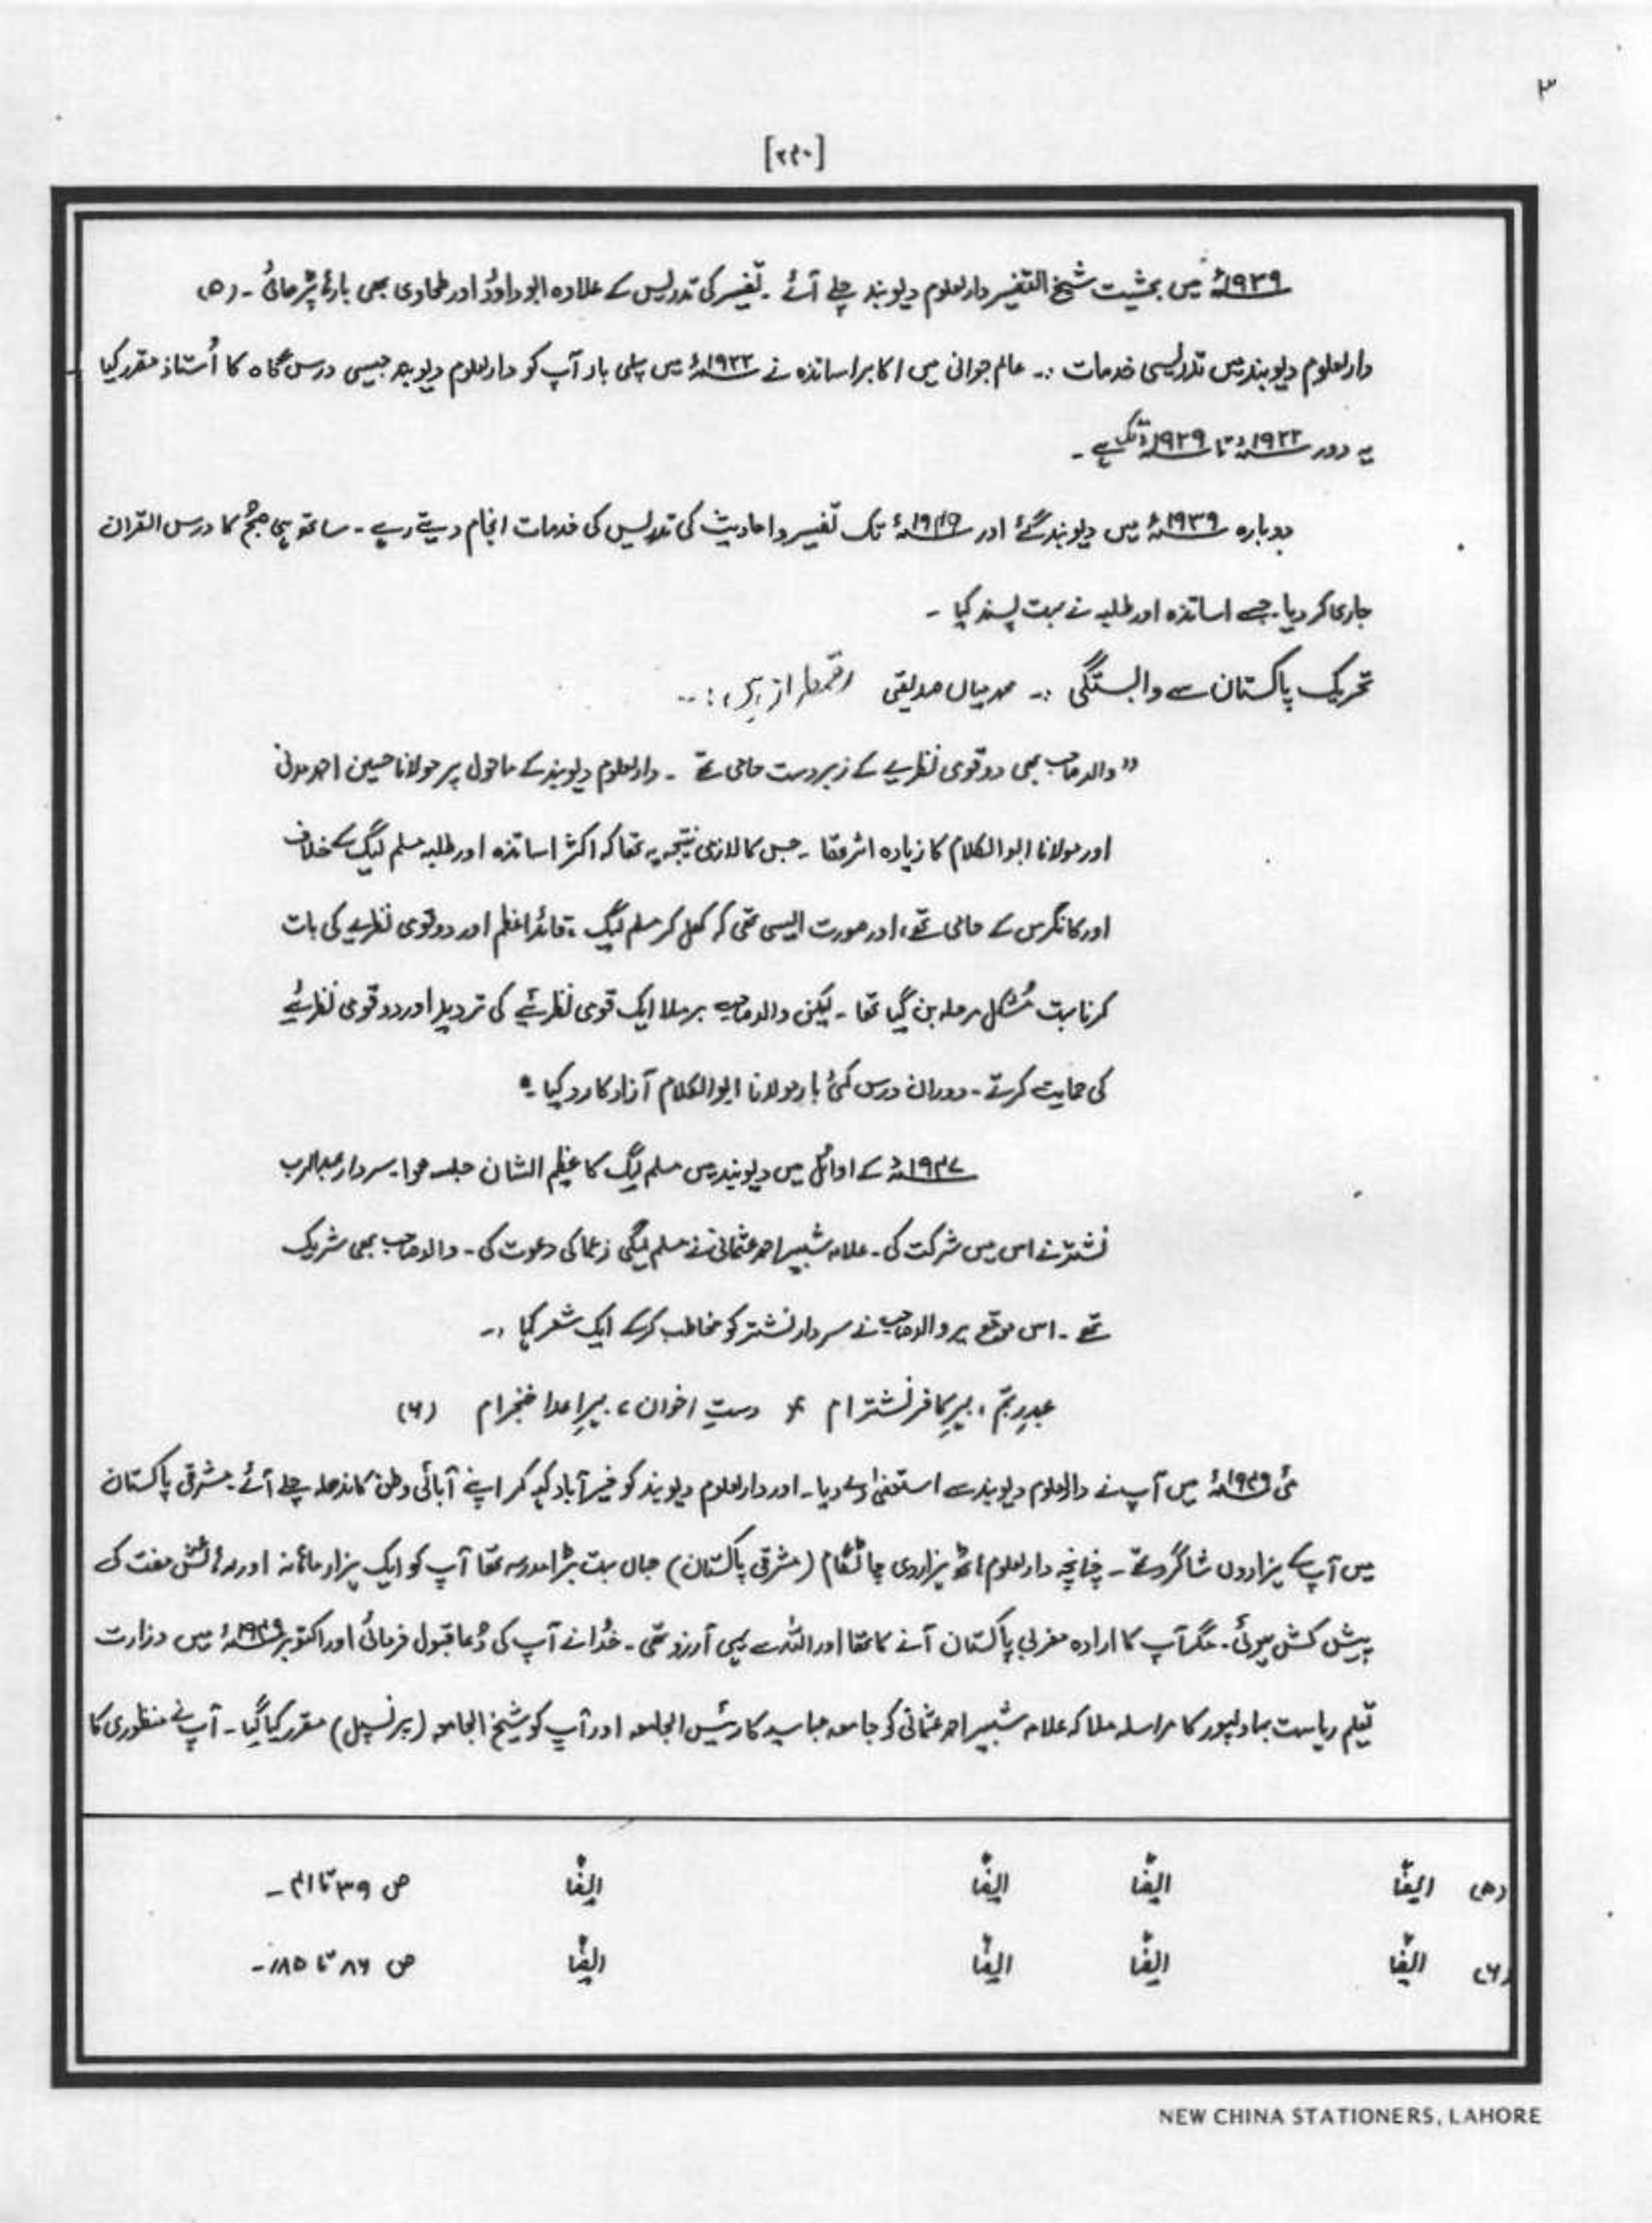 ۳
[۲۹۰]
۱۹۳۹ء میں بحثیت شیخ التفسیر دارلعلوم دیوبند چلے آئے ۔ تفسیر کی تدریس کے علاوہ ابوداؤد اور طحاوی بھی بارہا پڑھائی ۔ (۵)
دارلعلوم دیوبند میں تدریسی خدمات :۔ عالم جوانی میں اکابر اساتذہ نے ۱۹۲۲ء میں پہلی بار آپ کو دارلعلوم دیوبند جیسی درس گاہ کا اُستاذ مقرر کیا
یہ دور ۱۹۲۲ء تا ۱۹۲۹ء تک ہے ۔
دوبارہ ۱۹۳۹ء میں دیوبند گئے اور ۱۹۴۹ء تک تفسیر و احادیث کی تدریس کی خدمات انجام دیتے رہے ۔ ساتھ ہی صبح کا درس القران
جاری کر دیا۔ جسے اساتذہ اور طلبہ نے بہت پسند کیا ۔
تحریک پاکستان سے وابستگی :۔ محمد میاں صدیقی رقمطراز ہیں :۔
" والد صاحب بھی دو قومی نظریے کے زبردست حامی تھے ۔ دارلعلوم دیوبند کے ماحول پر مولانا حسین احمد مدنی
اور مولانا ابوالکلام کا زیادہ اثر تھا ۔ جس کا لازمی نتیجہ یہ تھا کہ اکثر اساتذہ اور طلبہ مسلم لیگ کے خلاف
اور کانگرس کے حامی تھے، اور صورت ایسی تھی کہ کھل کر مسلم لیگ ، قائداعظم اور دو قومی نظریے کی بات
کرنا بہت مُشکل مرحلہ بن گیا تھا ۔ لیکن والد صاحب برملا ایک قومی نظرئیے کی تردید اور دو قومی نظرئیے
کی حمایت کرتے ۔ دوران درس کئی بار مولانا ابوالکلام آزاد کا رد کیا ۔"
۱۹۴۷ء کے اوائل میں دیوبند میں مسلم لیگ کا عظیم الشان جلسہ ہوا۔ سردار عبدالرب
نشتر نے اس میں شرکت کی ۔ علامہ شبیر احمد عثمانی نے مسلم لیگی زعما کی دعوت کی ۔ والد صاحب بھی شریک
تھے ۔ اس موقع پر والد صاحب نے سردار نشتر کو مخاطب کرکے ایک شعر کہا :۔
عبدِ ربّم ، بہرِ کافر نشترام ؛ دستِ اخوان ، بہرِ اعدا خنجرام (۶)
مئی ۱۹۴۹ء میں آپ نے دارلعلوم دیوبند سے استعفیٰ دے دیا ۔ اور دارلعلوم دیوبند کو خیر آباد کہہ کر اپنے آبائی وطن کاندھلہ چلے آئے ۔ مشرقی پاکستان
میں آپ کے ہزاروں شاگرد تھے ۔ چنانچہ دارلعلوم ہاٹ ہزاروی چاٹگام (مشرقی پاکستان) جہاں بہت بڑا مدرسہ تھا آپ کو ایک ہزار ماہانہ اور رہائش مفت کی
پیش کش ہوئی ۔ مگر آپ کا ارادہ مغربی پاکستان آنے کا تھا اور اللہ سے یہی آرزو تھی ۔ خُدا نے آپ کی دُعا قبول فرمائی اور اکتوبر ۱۹۴۹ء میں وزارت
تعلیم ریاست بہاولپور کا مراسلہ ملا کہ علامہ شبیر احمد عثمانی کو جامعہ عباسیہ کا رئیس الجامعہ اور آپ کو شیخ الجامعہ (پرنسپل) مقرر کیا گیا ۔ آپ نے منظوری کا
(۵) ایضًا ایضًا ایضًا ایضًا ص ۳۹ تا ۴۱ ۔
(۶) ایضًا ایضًا ایضًا ایضًا ص ۸۶ تا ۸۵ ۔
NEW CHINA STATIONERS, LAHORE